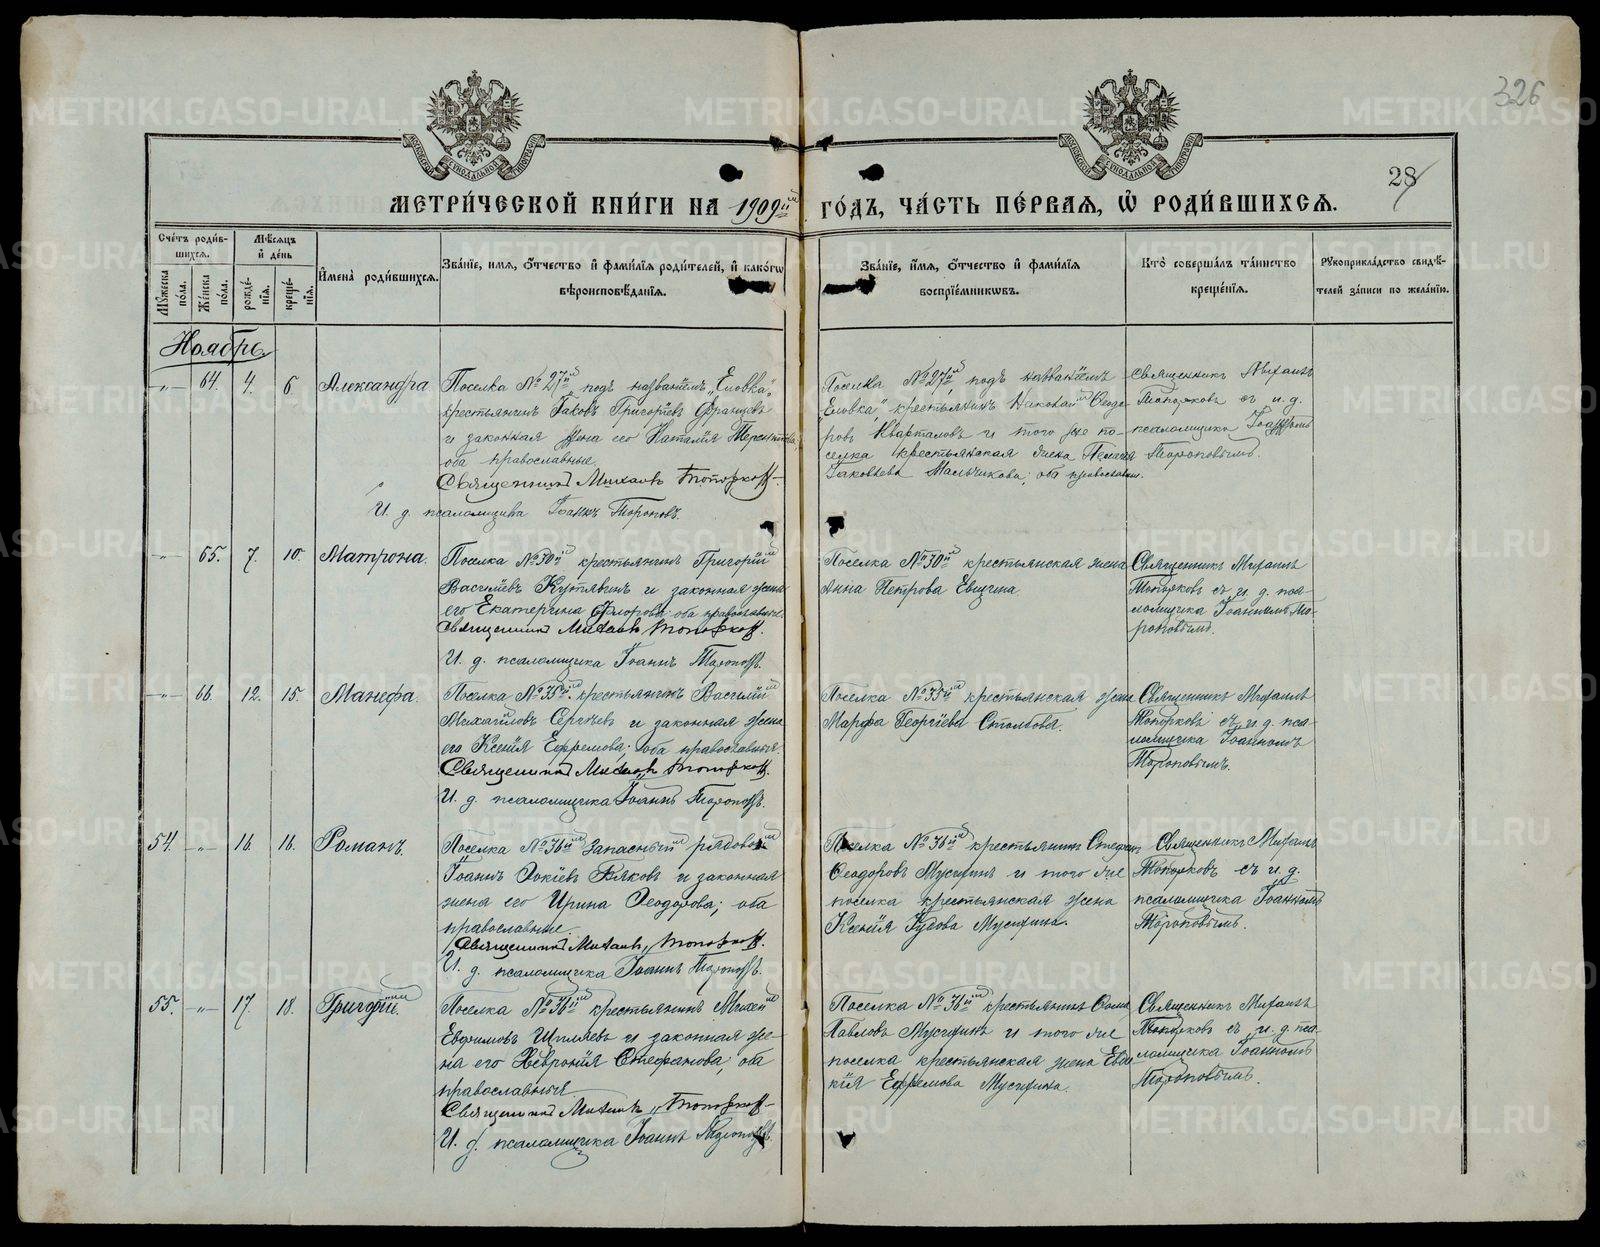 326
28
МЕТРИ́ЧЕСКОЙ КНИ́ГИ НА 1909й ГО́ДЪ, ЧА́СТЬ ПЕ́РВАЯ, Ѿ РОДИ́ВШИХСЯ.
Сче́тъ роди́в-
шихся.
Мѣ́сяцъ
и҆ де́нь
Мꙋ́жеска по́ла.
Же́нска по́ла.
рожде́-
нїѧ.
креще́-
нїѧ.
И҆мена̀ роди́вшихся.
Зва́нїе, и҆́мѧ, ѻ҆́тчество и҆ фами́лїѧ роди́телей, и҆ како́гѡ
вѣроисповѣ́данїѧ.
Зва́нїе, и҆́мѧ, ѻ҆́тчество и҆ фами́лїѧ
воспрїе́мникѡвъ.
Кто̀ соверша́лъ та́инство
креще́нїѧ.
Рꙋкоприкла́дство свидѣ́-
телей за́писи по жела́нїю.
Ноябрь
-„- 64. 4. 6. Александра
Поселка №27й подъ названіемъ „Еловка„
крестьянинъ Іаковъ Григоріевъ Францевъ
и законная жена его Наталія Терентьева,
оба православные.
Священникъ Михаилъ Топорковъ
И. д. псаломщика Іоаннъ Тороповъ.
Поселка №27й, подъ названіемъ
Еловка„ крестьянинъ Николай Ѳеодо-
ровъ Кварталовъ и того же по-
селка крестьянская жена
Іаковлева Мальчикова; оба православн.
Священникъ Михаилъ
Топорковъ съ и. д.
псаломщика Іоанномъ
Тороповымъ.
-„- 65. 7. 10. Матрона.
Поселка №30й крестьянинъ Григорій
Василіевъ Кутявинъ и законная жена
его Екатерина Флорова; оба православные.
Священникъ Михаилъ Топорковъ.
И. д. псаломщика Іоаннъ Тороповъ.
Поселка №30й крестьянская жена
Анна Петрова Евщина
Священникъ Михаилъ
Топорковъ съ и. д. пса-
ломщика Іоанномъ То-
роповымъ.
-„- 66. 12. 15. Манефа.
Поселка №35й крестьянинъ Василій
Михаиловъ Сергѣевъ и законная жена
его Ксенія Ефремова; оба православные
Священникъ Михаилъ Топорковъ.
И. д. псаломщика Іоаннъ Тороповъ.
Поселка №35й крестьянская жена
Марфа Георгіева Столбова.
Священникъ Михаилъ
Топорковъ съ и. д. пса-
ломщика Іоанномъ
Тороповымъ.
54. -„- 16. 16. Романъ.
Поселка №36й Запасный рядовой
Іоаннъ Бяковъ и законная
жена его Ирина Ѳеодорова; оба
православные.
Священникъ Михаилъ Топорковъ.
И. д. псаломщика Іоаннъ Тороповъ.
Поселка №36й крестьянинъ Стефанъ
Ѳеодоровъ Мусихинъ и того же
поселка крестьянская жена
Ксенія Мусихина.
Священникъ Михаилъ
Топорковъ съ и. д.
псаломщика Іоанномъ
Тороповымъ.
55. -„- 17. 18. Григорій.
Поселка №36й крестьянинъ Моисей
Евѳимовъ Шиляевъ и законная же-
на его Хеvронія Стефанова; оба
православныя
Священникъ Михаилъ Топорковъ
И. д. псаломщика Іоаннъ Тороповъ.
Поселка №36й крестьянинъ Ѳома
Павловъ Мусихинъ и того же
поселка крестьянская жена Евдо
кія Ефремова Мусихина.
Священникъ Михаилъ
Топорковъ съ и. д. пса-
ломщика Іоанномъ
Тороповымъ.
METRIKI.GASO-URAL.RU